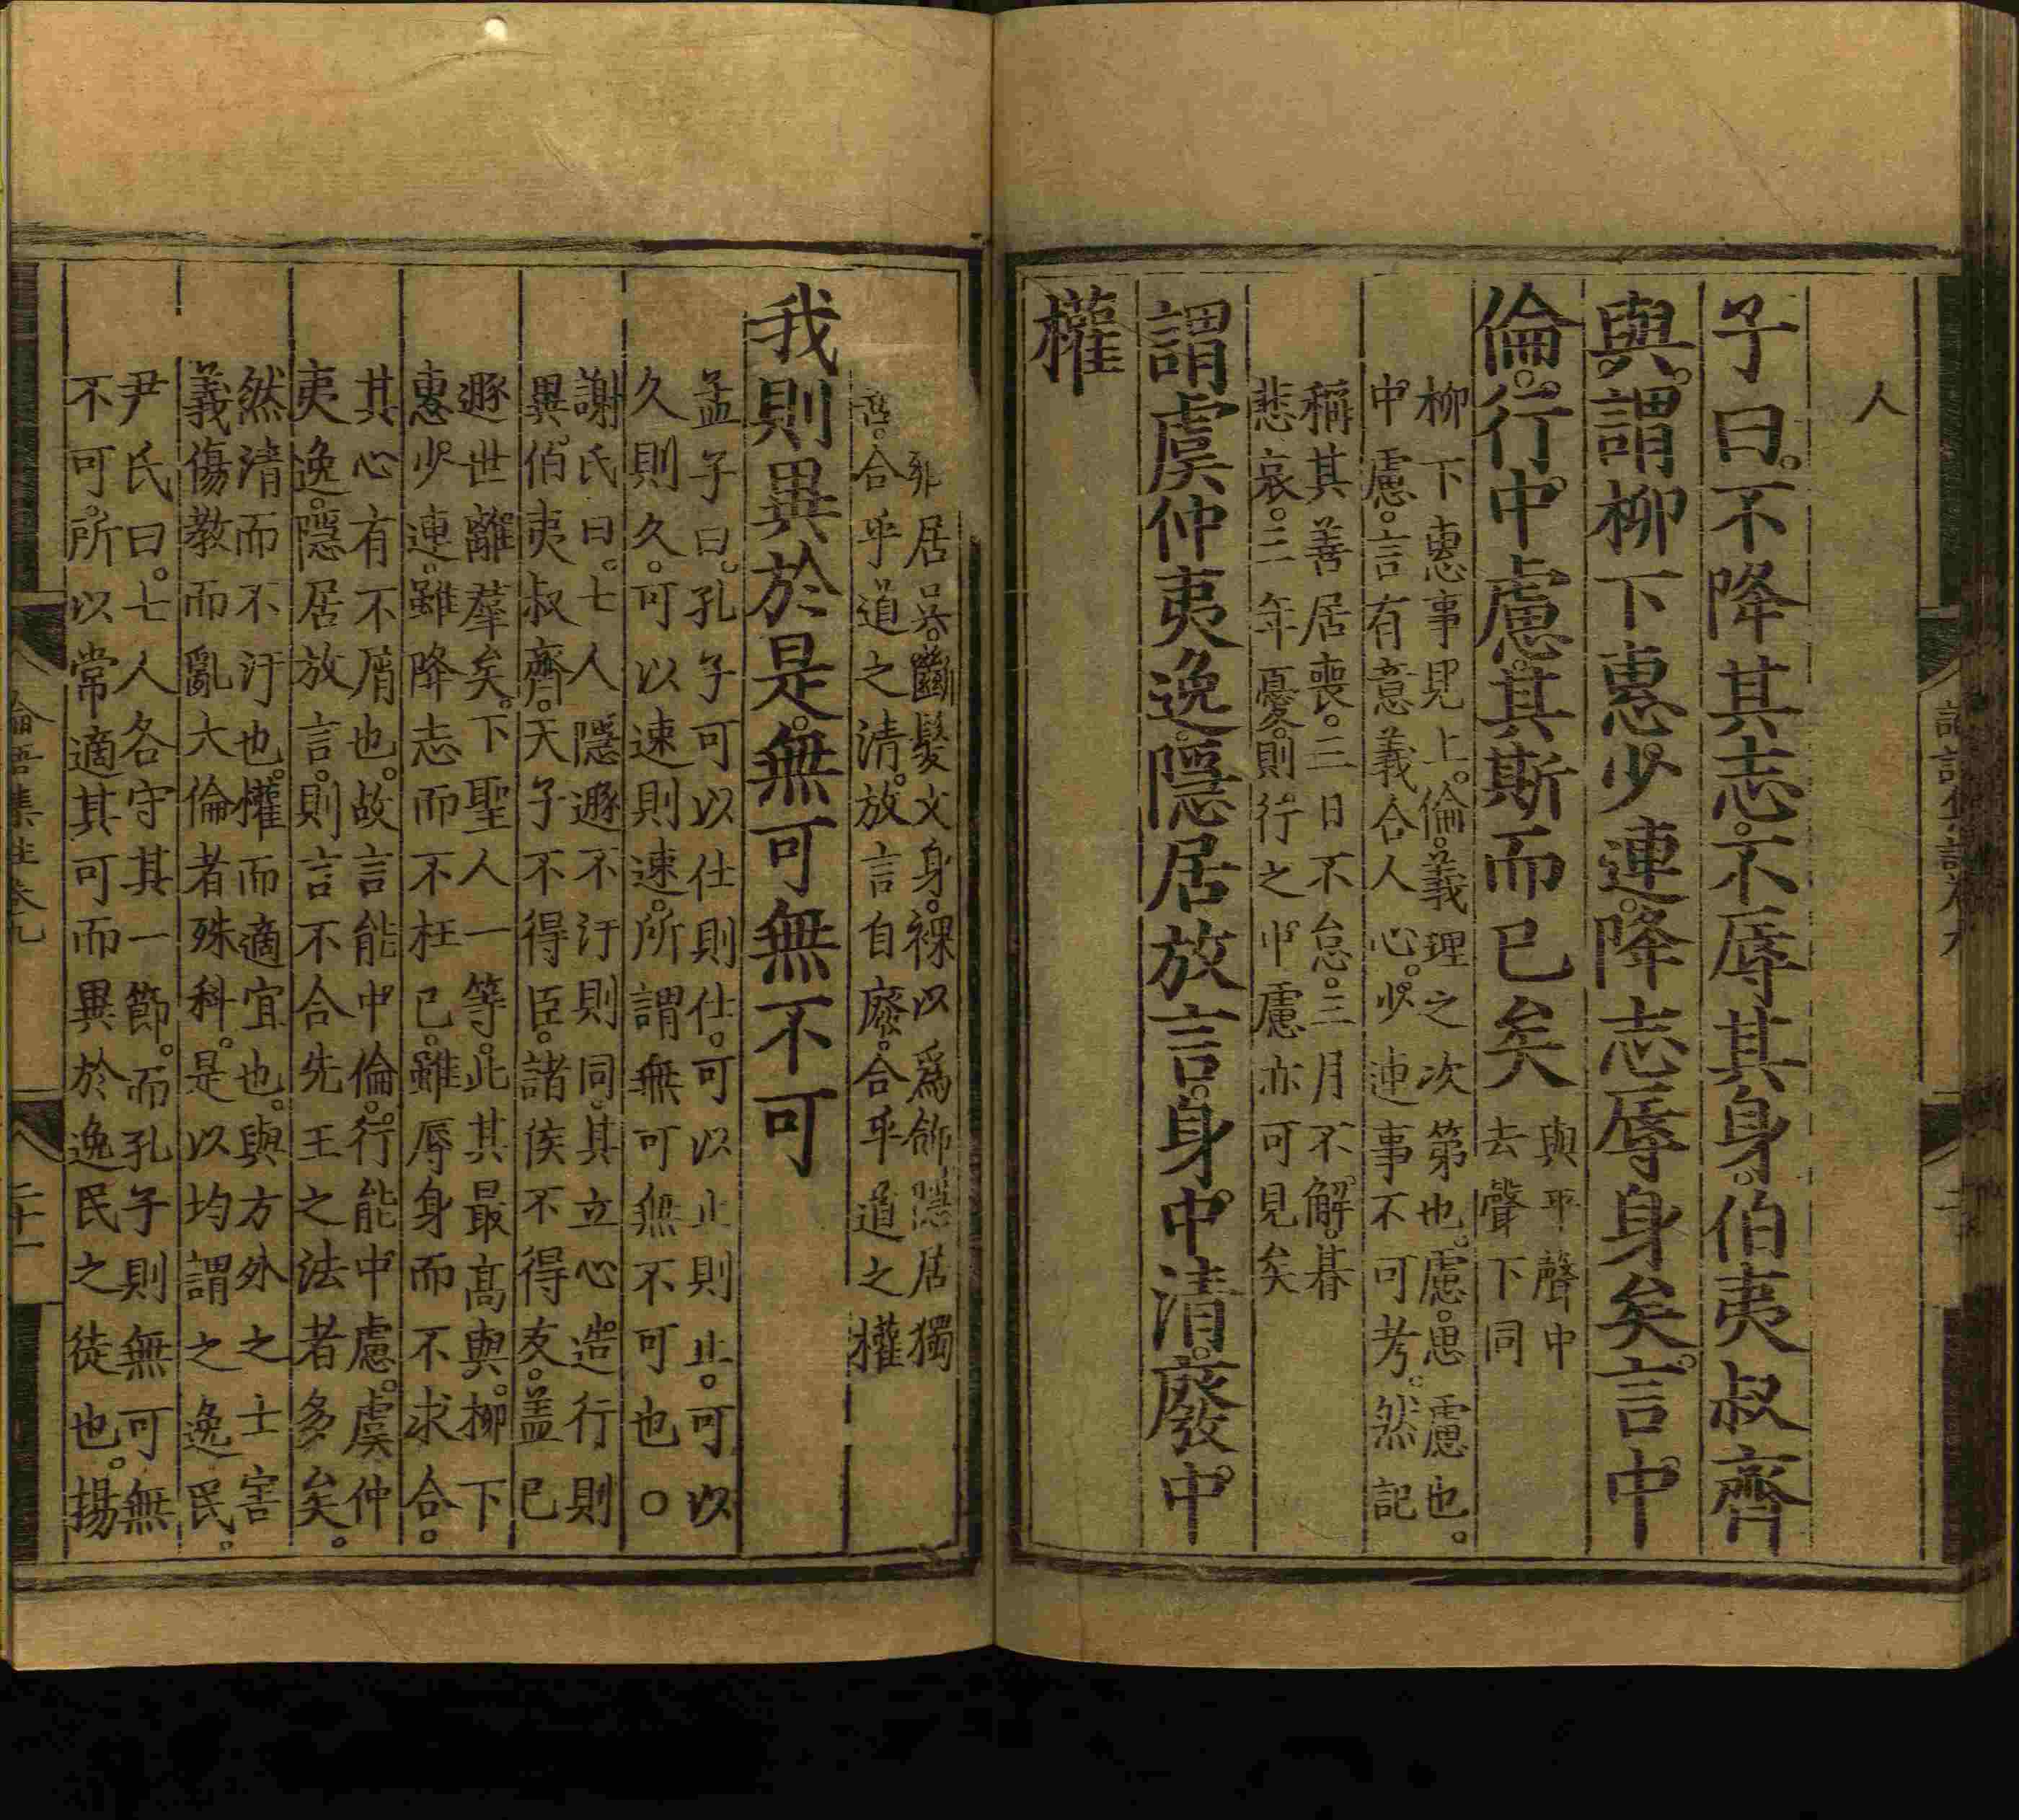 人
子曰。不降其志。不辱其身。伯夷叔齊
與。謂柳下惠。少連。降志辱身矣。言中
倫。行中慮。其斯而已矣
與平聲中
去聲下同
柳下惠事見上。倫。義理之次第也。慮。思慮也。
中慮。言有意義合人心。少連事不可考。然記
稱其善居喪。三日不怠。三月不解。朞
悲哀。三年憂。則行之中慮亦可見矣
謂虞仲夷逸。隱居放言。身中清。廢中
權
居吳。斷髮文身。裸以爲飾隱居獨
善。合乎道之清。放言自廢。合乎道之權
我則異於是。無可無不可
孟子曰。孔子可以仕則仕。可以止則止。可以
久則久。可以速則速。所謂無可無不可也○
謝氏曰。七人隱遯不汙則同。其立心造行則
異。伯夷叔齊。天子不得臣。諸侯不得友。蓋已
遯世離羣矣。下聖人一等。此其最高與。柳下
惠少連。雖降志而不枉己。雖辱身而不求合。
其心有不屑也。故言能中倫。行能中慮。虞仲
夷逸。隱居放言。則言不合先王之法者多矣。
然清而不汙也。權而適宜也。與方外之士害
義傷教而亂大倫者殊科。是以均謂之逸民。
尹氏曰。七人各守其一節。而孔子則無可無
不可。所以常適其可而異於逸民之徒也。揚
論語集註卷九
二十一